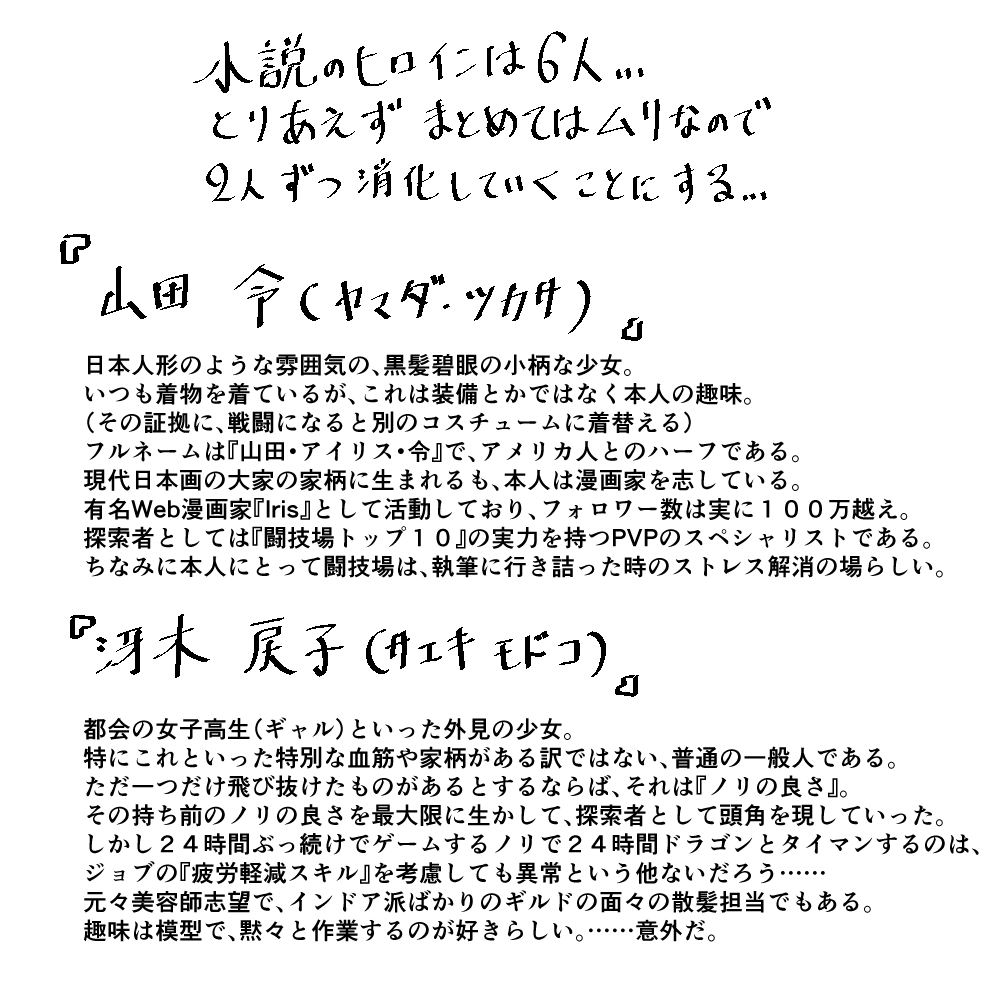 小説のヒロインは6人...
とりあえず まとめてはムリなので
2人ずつ消化していくことにする...
『山田 令(ヤマダ・ツカサ)』
日本人形のような雰囲気の、黒髪碧眼の小柄な少女。
いつも着物を着ているが、これは装備とかではなく本人の趣味。
（その証拠に、戦闘になると別のコスチュームに着替える）
フルネームは『山田・アイリス・令』で、アメリカ人とのハーフである。
現代日本画の大家の家柄に生まれるも、本人は漫画家を志している。
有名Web漫画家『Iris』として活動しており、フォロワー数は実に１００万越え。
探索者としては『闘技場トップ１０』の実力を持つPVPのスペシャリストである。
ちなみに本人にとって闘技場は、執筆に行き詰った時のストレス解消の場らしい。
『冴木 戻子(サエキ モドコ)』
都会の女子高生（ギャル）といった外見の少女。
特にこれといった特別な血筋や家柄がある訳ではない、普通の一般人である。
ただ一つだけ飛び抜けたものがあるとするならば、それは『ノリの良さ』。
その持ち前のノリの良さを最大限に生かして、探索者として頭角を現していった。
しかし２４時間ぶっ続けでゲームするノリで２４時間ドラゴンとタイマンするのは、
ジョブの『疲労軽減スキル』を考慮しても異常という他ないだろう……
元々美容師志望で、インドア派ばかりのギルドの面々の散髪担当でもある。
趣味は模型で、黙々と作業するのが好きらしい。……意外だ。